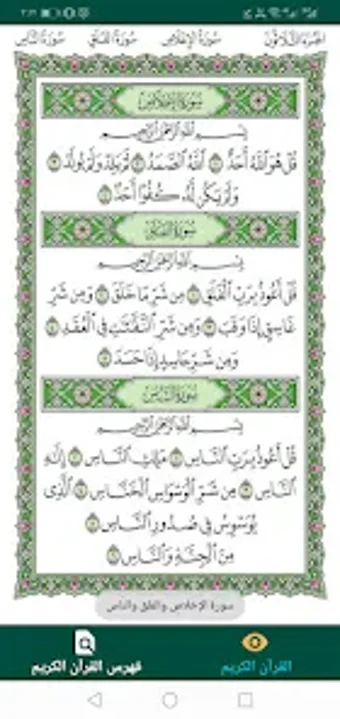 الجزء الثلاثون سورة الإخلاص سورة الفلق سورة الناس
سورة الإخلاص
بسم الله الرحمن الرحيم
قُلْ هُوَ ٱللَّهُ أَحَدٌ ١ ٱللَّهُ ٱلصَّمَدُ ٢ لَمْ يَلِدْ وَلَمْ يُولَدْ ٣
وَلَمْ يَكُن لَّهُۥ كُفُوًا أَحَدٌۢ ٤
سورة الفلق
بسم الله الرحمن الرحيم
قُلْ أَعُوذُ بِرَبِّ ٱلْفَلَقِ ١ مِن شَرِّ مَا خَلَقَ ٢ وَمِن شَرِّ
غَاسِقٍ إِذَا وَقَبَ ٣ وَمِن شَرِّ ٱلنَّفَّـٰثَـٰتِ فِى ٱلْعُقَدِ ٤
وَمِن شَرِّ حَاسِدٍ إِذَا حَسَدَ ٥
سورة الناس
بسم الله الرحمن الرحيم
قُلْ أَعُوذُ بِرَبِّ ٱلنَّاسِ ١ مَلِكِ ٱلنَّاسِ ٢ إِلَـٰهِ
ٱلنَّاسِ ٣ مِن شَرِّ ٱلْوَسْوَاسِ ٱلْخَنَّاسِ ٤ ٱلَّذِى
يُوَسْوِسُ فِى صُدُورِ ٱلنَّاسِ ٥
مِنَ ٱلْجِنَّةِ وَٱلنَّاسِ ٦
سورة الإخلاص والفلق والناس
القرآن الكريم
فهرس القرآن الكريم